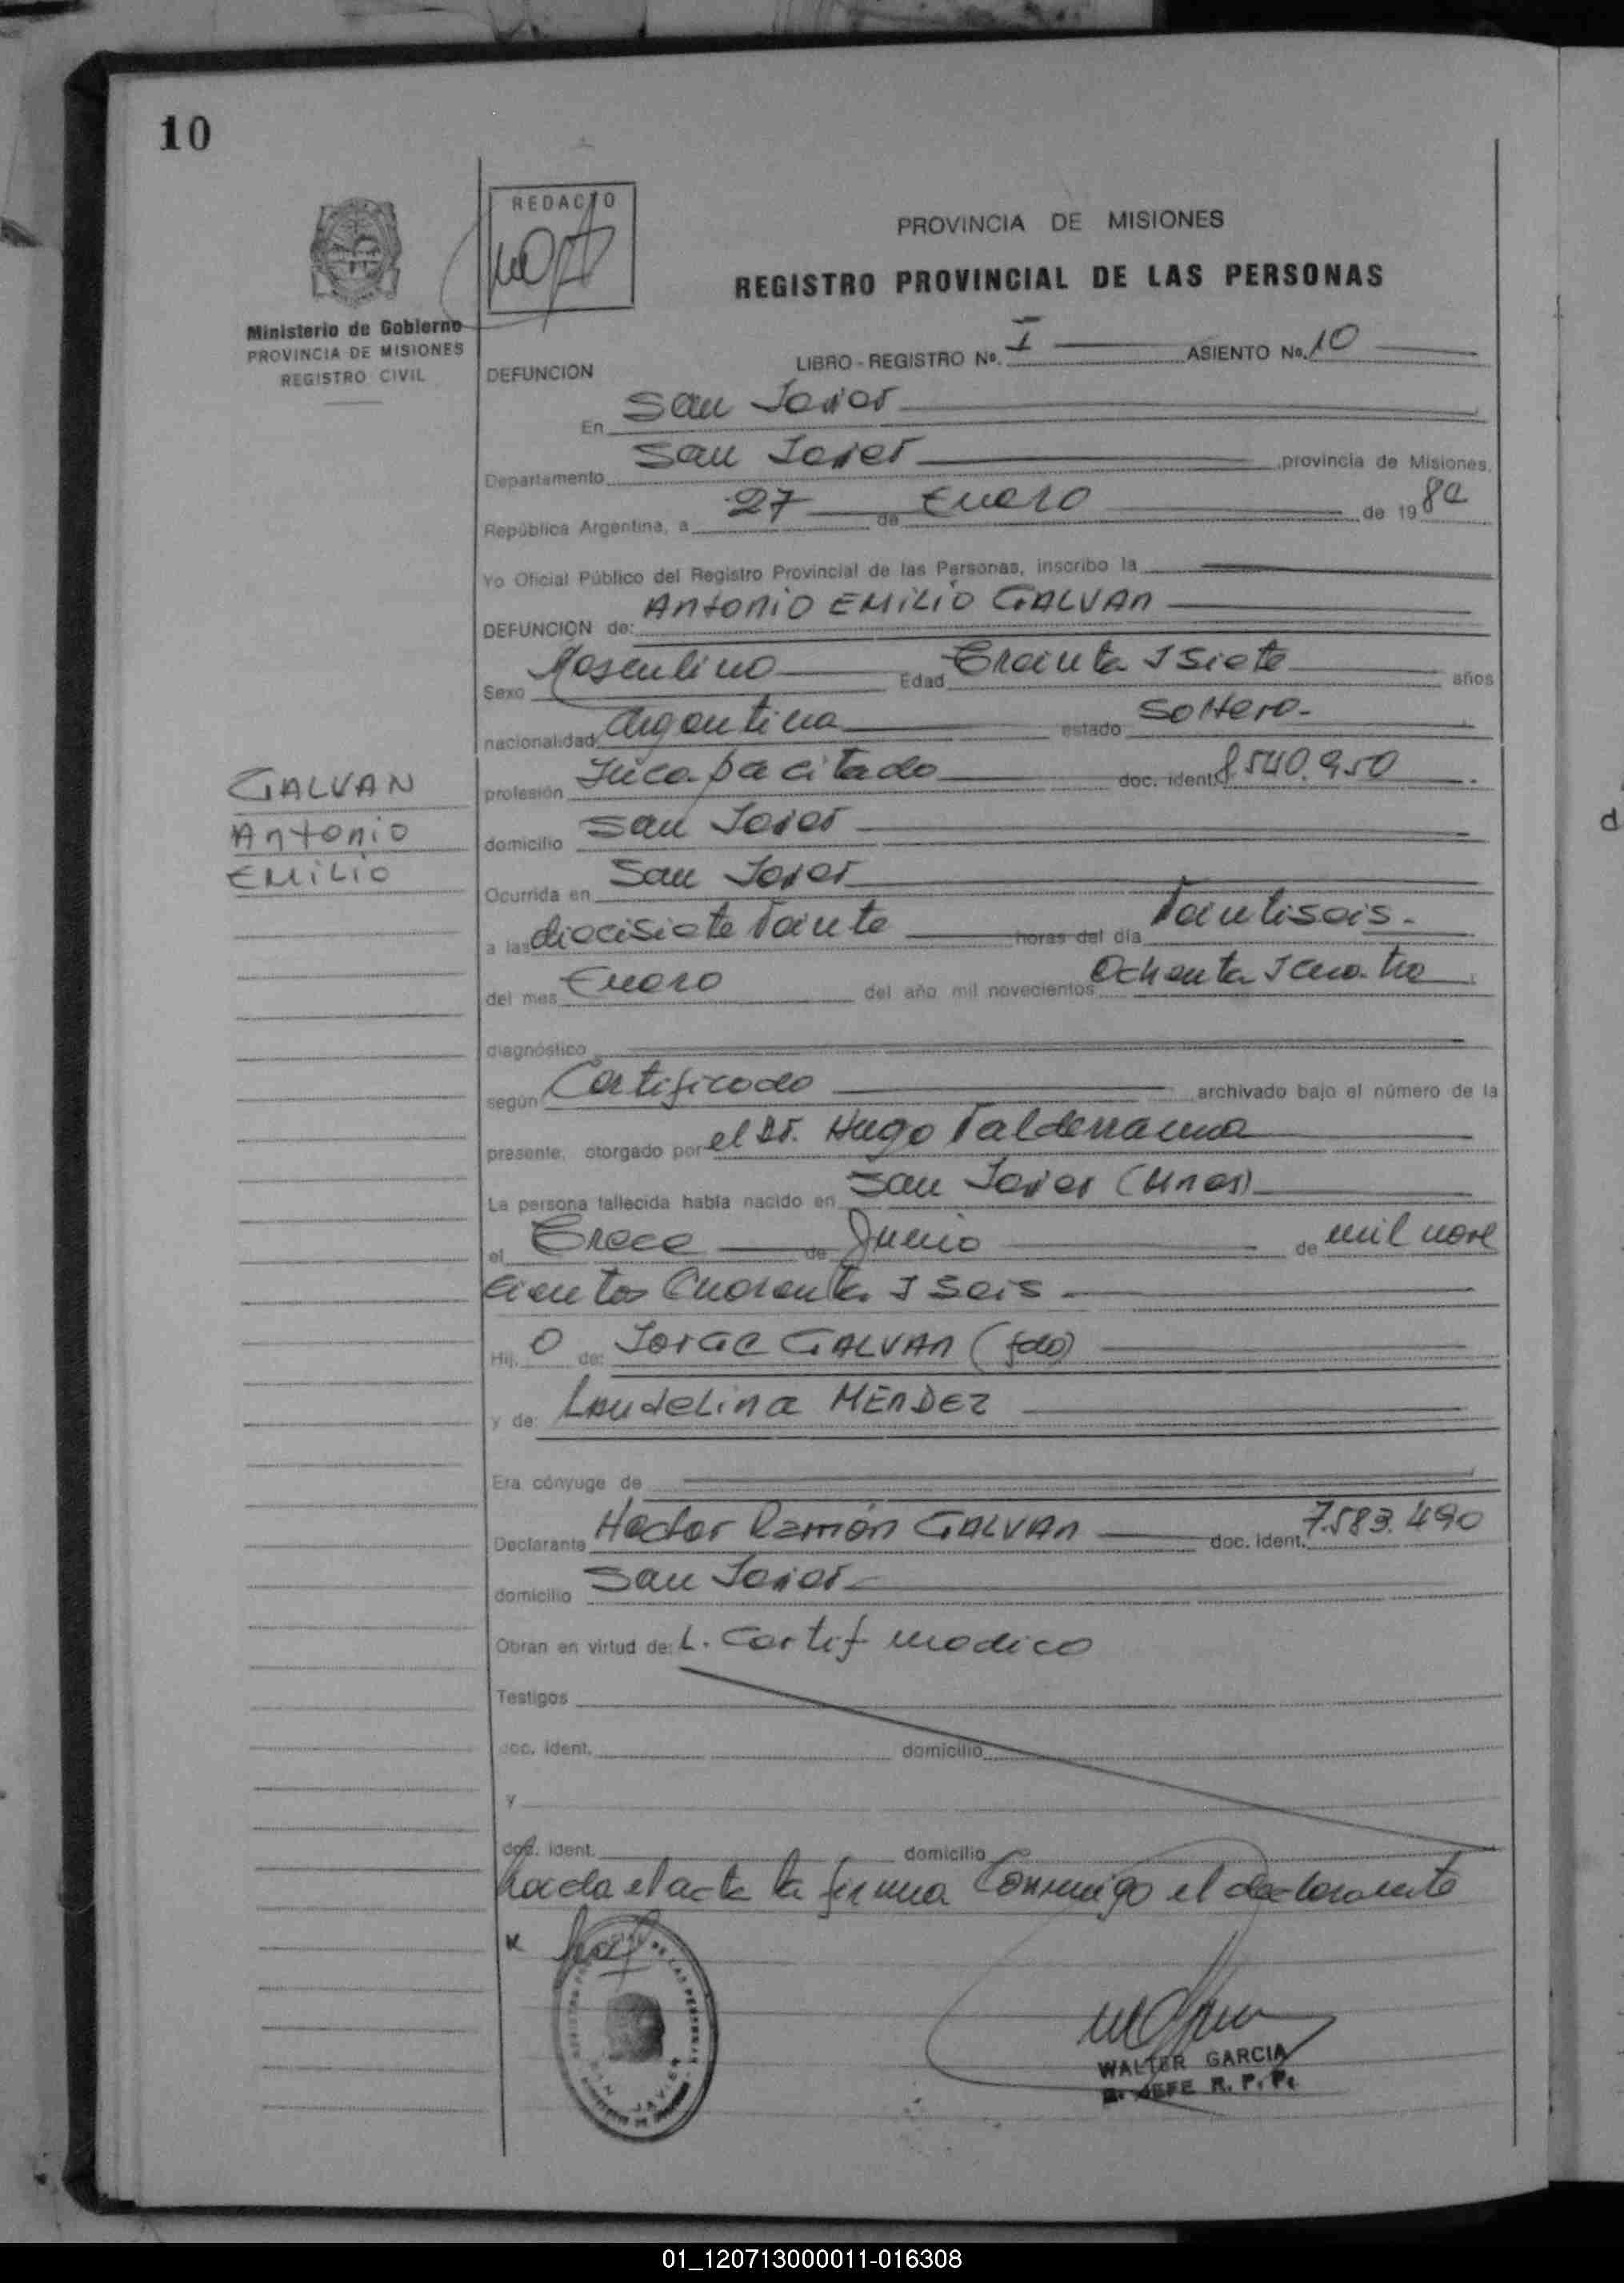 10
REDACTO
PROVINCIA DE MISIONES
REGISTRO PROVINCIAL DE LAS PERSONAS
Ministerio de Gobierno
PROVINCIA DE MISIONES
REGISTRO CIVIL
LIBRO - REGISTRO No. I ASIENTO No. 10
DEFUNCION
En San Javier
Departamento San Javier provincia de Misiones,
República Argentina, a 27 de Enero de 1984
Yo Oficial Público del Registro Provincial de las Personas, inscribo la
DEFUNCION de: Antonio Emilio GALVAN
Sexo Masculino Edad Treinta y Siete años
nacionalidad Argentina estado Soltero.
profesión Incapacitado doc. ident. 8.540.950
GALVAN
Antonio
Emilio
domicilio San Javier
Ocurrida en San Javier
a las diecisiete Veinte horas del día Veintiseis.
del mes Enero del año mil novecientos Ochenta y Cuatro
diagnóstico
según Certificado archivado bajo el número de la
presente, otorgado por el Dr. Hugo Valderrama
La persona fallecida había nacido en San Javier (Mnes)
el Trece de Junio de mil nove
cientos Cuarenta y Seis
Hij o de: Jorge GALVAN (fdo)
y de: Laudelina MENDEZ
Era cónyuge de
Declarante Hector Ramón GALVAN doc. ident. 7.583.490
domicilio San Javier
Obran en virtud de: L. Certif medico
Testigos
doc. ident. domicilio
y
doc. ident. domicilio
Leida el acta la firma Conmigo el declarante
REGISTRO PROVINCIAL DE LAS PERSONAS
SAN JAVIER
WALTER GARCIA
JEFE R. P. P.
01_120713000011-016308